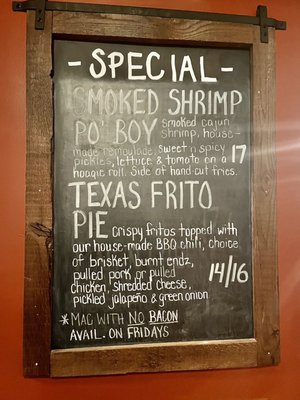 - SPECIAL -
SMOKED SHRIMP
PO' BOY smoked cajun
shrimp, house-
made remoulade, sweet n spicy
pickles, lettuce & tomato on a 17
hoagie roll. Side of hand cut fries.
TEXAS FRITO
PIE crispy fritos topped with
our house-made BBQ chili, choice
of brisket, burnt endz,
pulled pork, or pulled 14/16
chicken, shredded cheese,
pickled jalapeño & green onion
*MAC WITH NO BACON
AVAIL. ON FRIDAYS